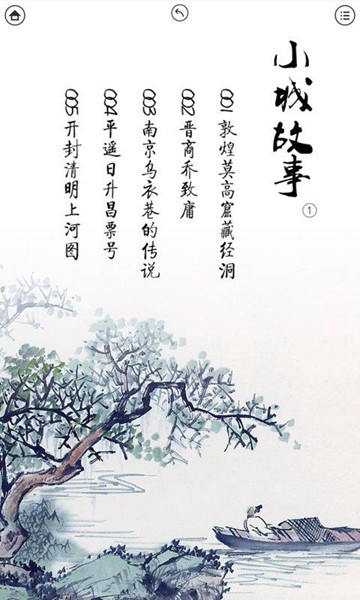 小城故事
①
001 敦煌莫高窟藏经洞
002 晋商乔致庸
003 南京乌衣巷的传说
004 平遥日升昌票号
005 开封清明上河图